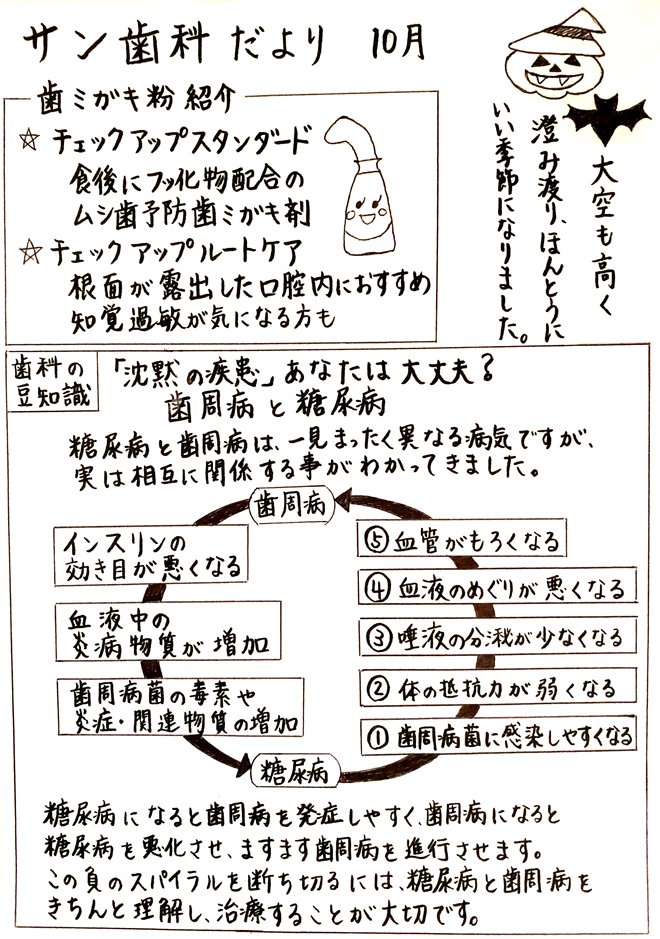 サン歯科だより 10月
大空も高く
澄み渡り、ほんとうに
いい季節になりました。
歯ミガキ粉紹介
☆ チェックアップスタンダード
食後にフッ化物配合の
ムシ歯予防歯ミガキ剤
☆ チェックアップルートケア
根面が露出した口腔内におすすめ
知覚過敏が気になる方も
歯科の
豆知識
「沈黙の疾患」あなたは大丈夫?
歯周病と糖尿病
糖尿病と歯周病は、一見まったく異なる病気ですが、
実は相互に関係する事がわかってきました。
歯周病
インスリンの
効き目が悪くなる
血液中の
炎病物質が増加
歯周病菌の毒素や
炎症・関連物質の増加
⑤血管がもろくなる
④血液のめぐりが悪くなる
③唾液の分泌が少なくなる
②体の抵抗力が弱くなる
①歯周病菌に感染しやすくなる
糖尿病
糖尿病になると歯周病を発症しやすく、歯周病になると
糖尿病を悪化させ、ますます歯周病を進行させます。
この負のスパイラルを断ち切るには、糖尿病と歯周病を
きちんと理解し、治療することが大切です。